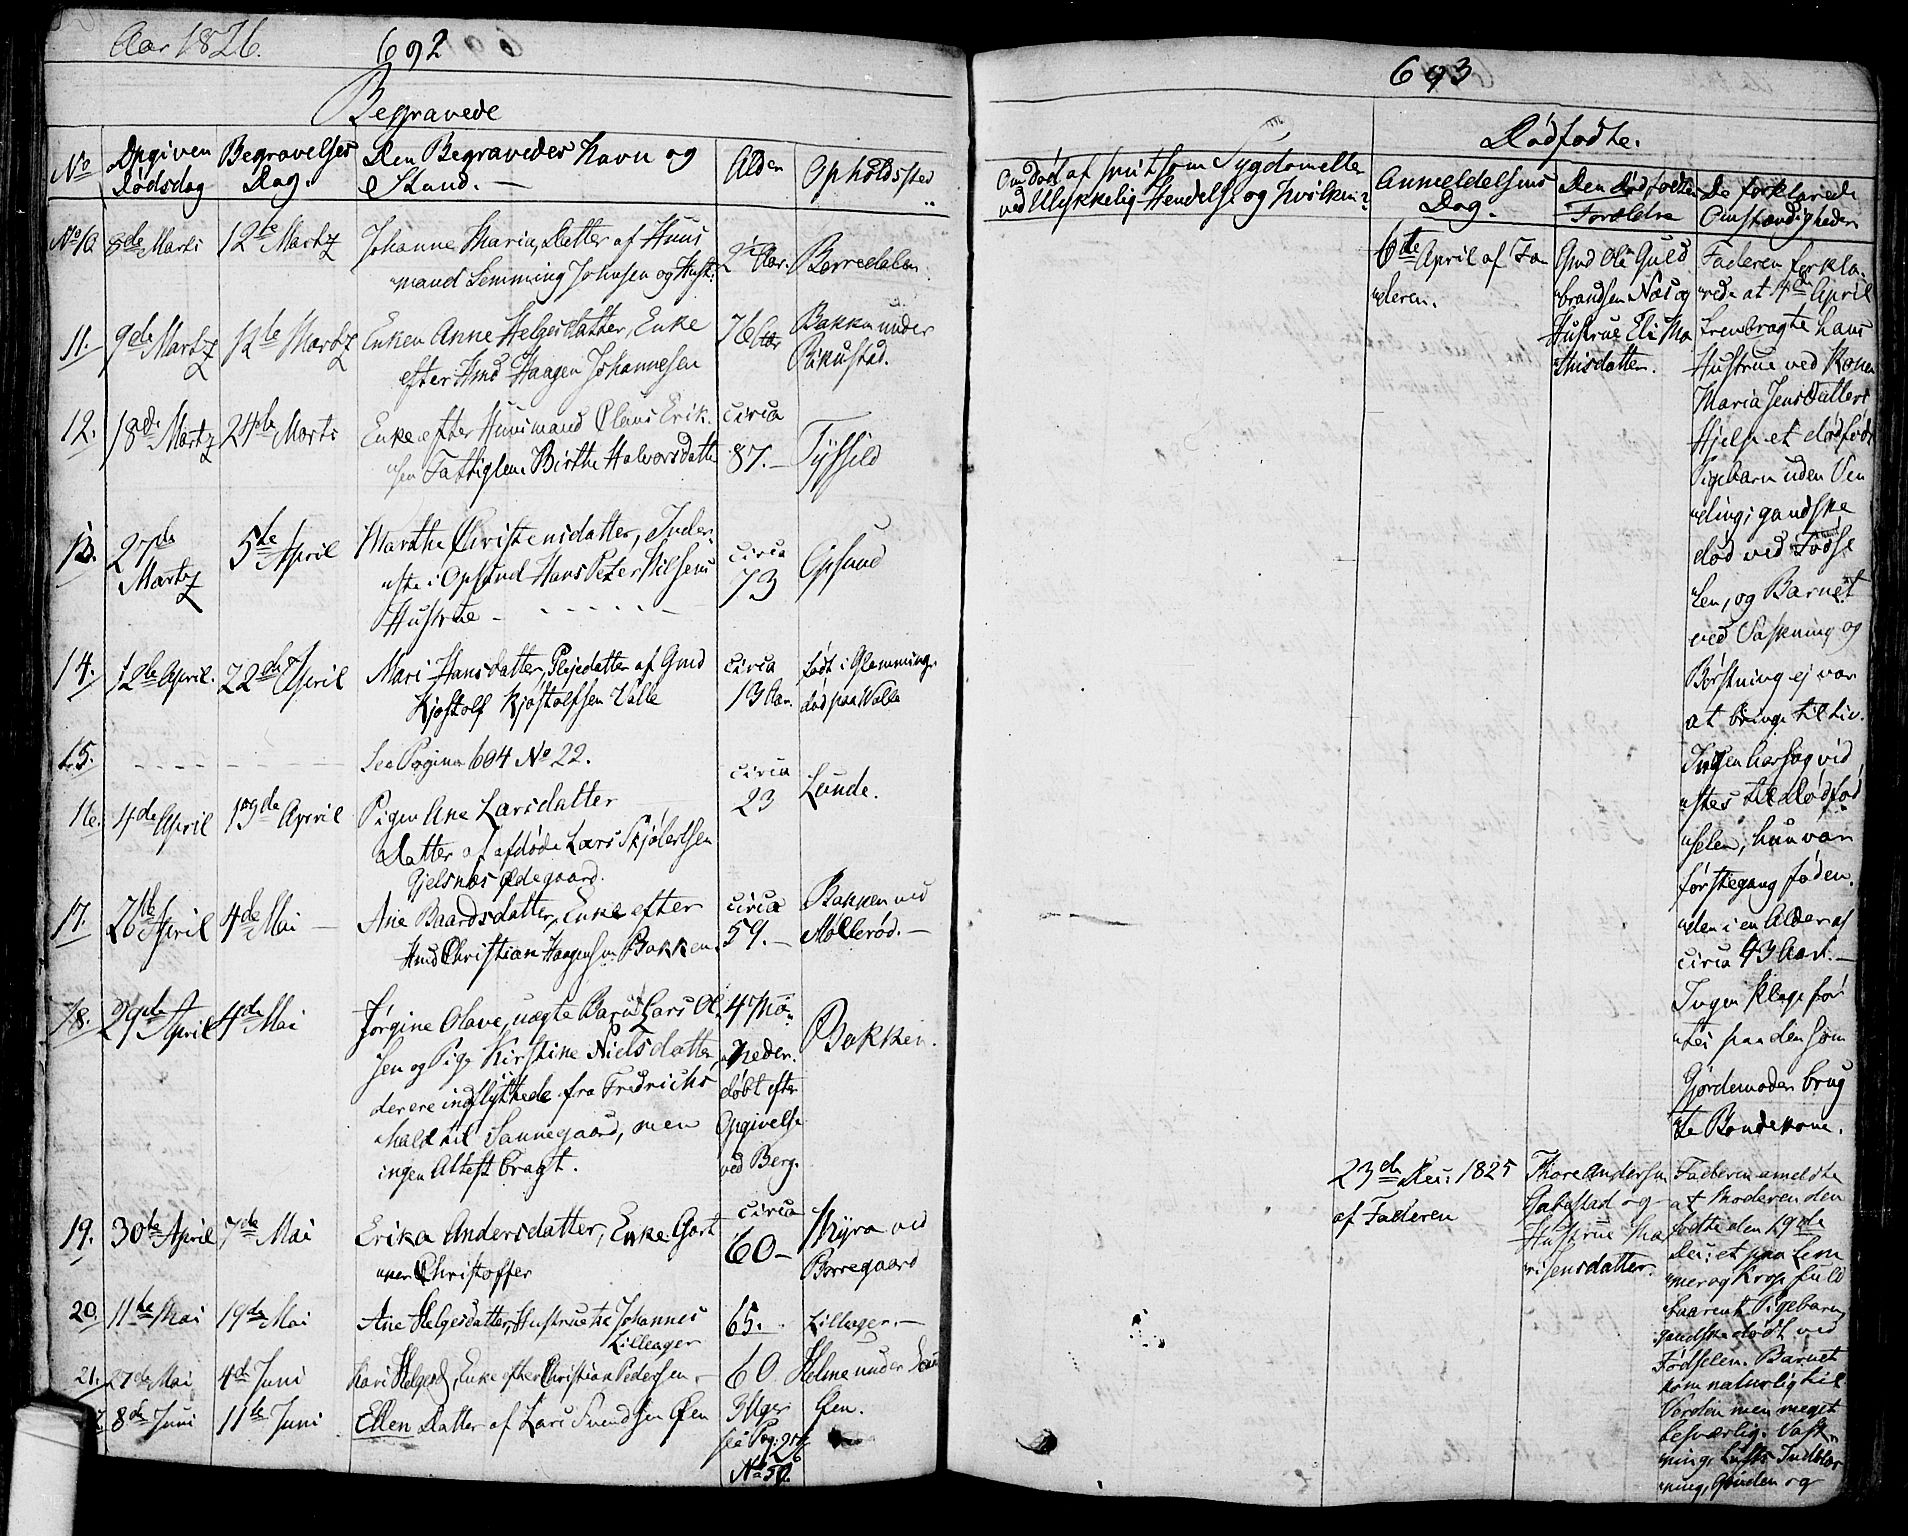 Aar 1826.
692
Begravede
No
Opgiven Dødsdag
Begravelses Dag.
Den Begravedes Navn og Stand. —
Alder
Opholdssted
No 10. 8de Marts 12te Martz Johanne Maria, Datter af Huus
mand Lemming Johnsen og Hust. 2 Aar. Borredalen.
11. 9de Martz 12te Martz Enken Anne Helgesdatter, Enke
efter Hmd Haagen Johannesen 76 Aar Bakken under
12. 18de Martz 24de Marts Enke efter Huusmand Claus Erik
sen Fattiglem Birthe Halvorsdatter circa 87. —
13. 27de Martz 5te April Marthe Christensdatter, Inder
ste i Opsund Hans Peter Nilsens
Hustrue — circa 73 Opsund
14. 12te April. 22de April Mari Hansdatter, Plejedatter af Gmd
Kjøstolf Kjøstolfsen Valle circa 13 Aar. født i Glemminge
død paa Valle
15. See Pagina 694 No 22.
16. 4de April 19de April Pigen Ane Larsdatter
Datter af afdøde Lars Skjølertsen
Gjelsnæs Ødegaard. circa 23 Lunde.
17. 26de April 4de Mai — Ane Baardsdatter, Enke efter
Hmd Christian Haagensen Bakken. circa 59. — Bakken ved
Møllerød. —
18. 29de April 4de Mai Jørgine Olave, uægte Barn Lars Ol
sen og Pige Kirstine Nielsdatter,
der ere indflyttede fra Fredrichs
hald til Sannegaard, men
ingen Attest bragt. 4 Mo
neder.
døbt efter
Opgivelse
ved Berg. Bakken.
19. 30te April 7de Mai Erika Andersdatter, Enke Gart
ner Christoffer circa 60 — Myra ved
Borregaard
20. 11te Mai 19de Mai Ane Helgesdatter, Hustrue til Johannes
Lilleager 65. Lilleager. —
21. 27de Mai 4de Juni Kari Helgesd, Enke efter Christian Pedersen — 60 Holme under
8de Juni 11te Juni Ellen Datter af Lars Svendsen Øen 3 Uger
see Pag:
No 50. Øen.
693
Om død af smitsom Sygdom eller
ved Ulykkelig Hendelse og hvilken?
Dødfødte.
Anmeldelsens
Dag.
Den dødfødtes
Forældre
De forklarede
Omstændigheder
6te April af Fa
deren.
Gmd Ole Guld
brandsen Næs og
Hustrue Eli Ma
thisdatter.
Faderen forkla
rede at 4de April
frembragte hans
Hustrue ved Konen
Maria Jensdatters
Hjelp et dødfødt
Pigebarn uden Ven
ding; gandske
død ved Fødse
len, og Barnet
ved Vaskning og
Børstning ej var
at bringe til Liv.
Ingen harsag vid
stes til Dødfød
selen, hun var
førstegang føden
den i en Alder af
circa 43 Aar. —
Ingen Klage før
tes paa den som
Gjordemoder brug
te Bondekone.
23de Dec: 1825
af Faderen
Thore Andersen
og
Hustrue Ma
ri Jensdatter.
Faderen anmeldte
at Moderen den
fødte den 19de
Dec: et paa Lem
mer og Krop fuld
baarent Pigebarn
gandske dødt ved
Fødselen. Barnet
kom naturlig til
Verden men meget
besværlig. Vask
ning, Lufts Indblæs
ning, Gniden og